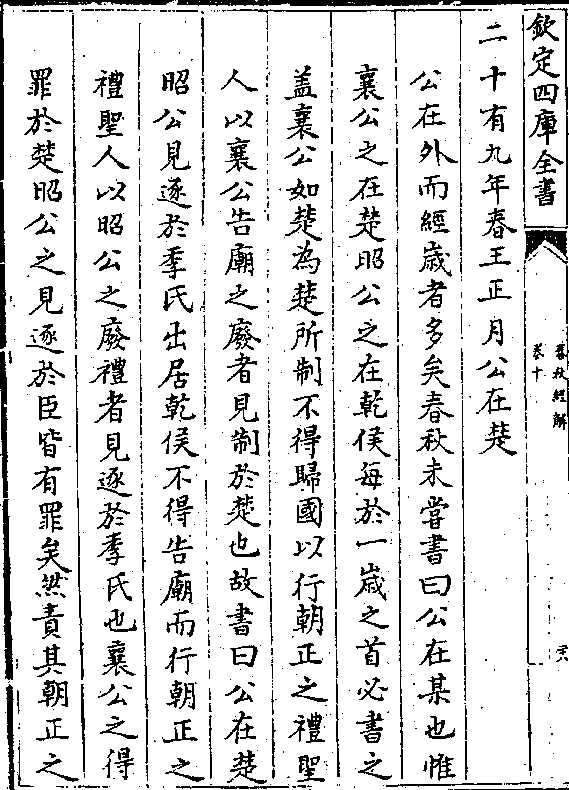 欽定四庫全書
春秋經解
卷十
二十有九年春王正月公在楚
公在外而經歲者多矣春秋未嘗書曰公在某也惟
襄公之在楚昭公之在乾侯每於一歲之首必書之
盖襄公如楚為楚所制不得歸國以行朝正之禮聖
人以襄公告廟之廢者見制於楚也故書曰公在楚
昭公見逐於季氏出居乾侯不得告廟而行朝正之
禮聖人以昭公之廢禮者見逐於季氏也襄公之得
罪於楚昭公之見逐於臣皆有罪矣然責其朝正之